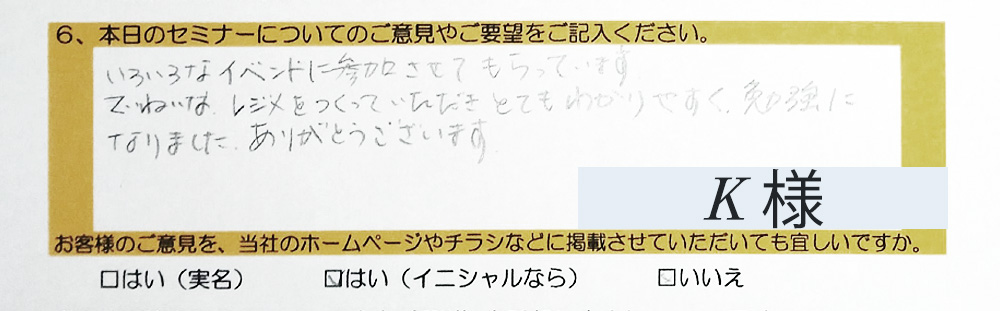 6、本日のセミナーについてのご意見やご要望をご記入ください。
いろいろなイベントに参加させてもらっています
ていねいな、レジメをつくっていただきとてもわかりやすく、勉強に
なりました。ありがとうございます
K 様
お客様のご意見を、当社のホームページやチラシなどに掲載させていただいても宜しいですか。
□はい（実名） ☑はい（イニシャルなら） □いいえ